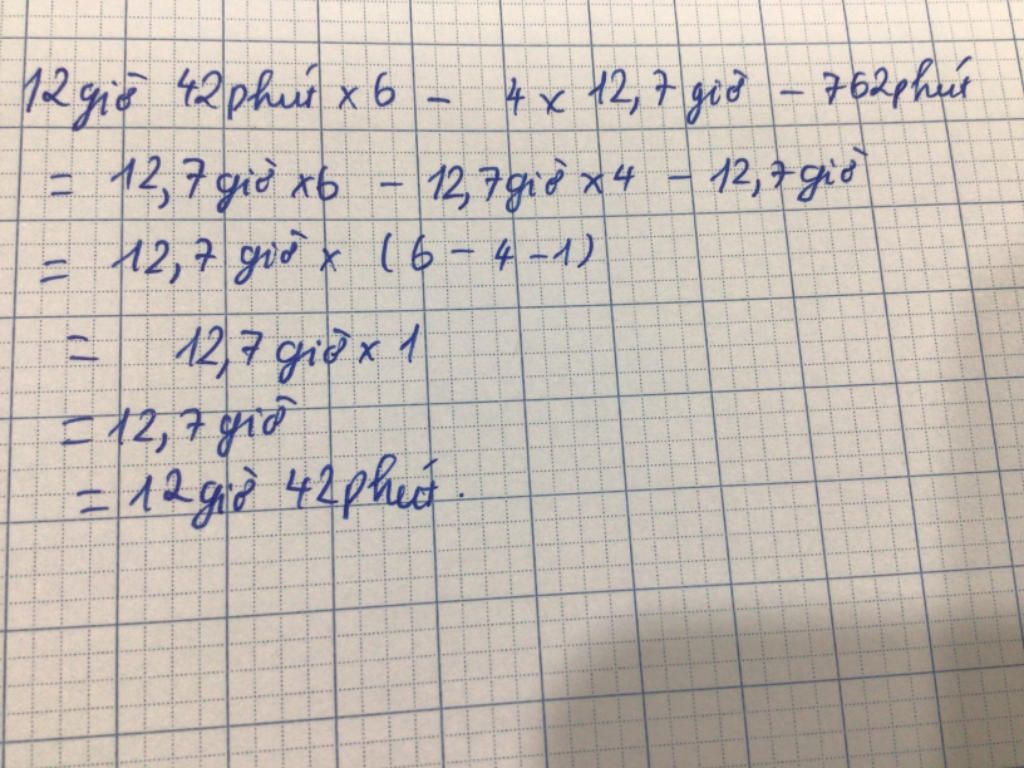 12 giờ 42 phút × 6 - 4 × 12,7 giờ - 762 phút
= 12,7 giờ × 6 - 12,7 giờ × 4 - 12,7 giờ
= 12,7 giờ × (6 - 4 - 1)
= 12,7 giờ × 1
= 12,7 giờ
= 12 giờ 42 phút.